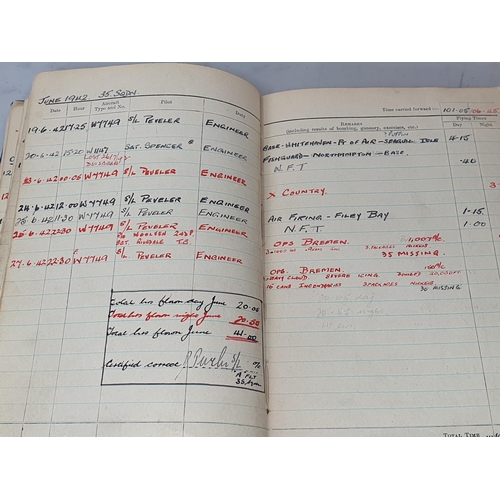 JUNE 1942 35. SQDN.
Date Hour Aircraft Type and No. Pilot Duty
19.6.42 17.25 W7749 S/L PEVELER ENGINEER
20.6.42 15.20 W1147 SGT. SPENCER ENGINEER
LOST 26/7/42
23.6.42 10.05 W7749 S/L PEVELER ENGINEER
24.6.42 12.00 W7749 S/L PEVELER ENGINEER
25.6.42 11.30 W7749 S/L PEVELER ENGINEER
25.6.42 22.30 W7749 S/L PEVELER ENGINEER
27.6.42 22.30 W7749 S/L PEVELER ENGINEER
Total hrs flown day June 20.05
Total hrs flown night June
Total hrs flown June
Certified correct S/L o/c
"A" FLT
35 Sqdn
Time carried forward:— 101.05
REMARKS
(including results of bombing, gunnery, exercises, etc.)
Flying Times
Day Night
PUFFIN
BASE - WHITEHAVEN - PT OF AIR - SEAGULL ISLE 4.15
FISHGUARD - NORTHAMPTON - BASE.
N.F.T .40
X COUNTRY. 3
AIR FIRING - FILEY BAY 1.15
N.F.T. 1.00
OPS BREMEN.
35 MISSING.
OPS. BREMEN.
HEAVY CLOUD SEVERE ICING
INCENDIARIES 5 PACKAGES NICKELS
30 MISSING
TOTAL TIME